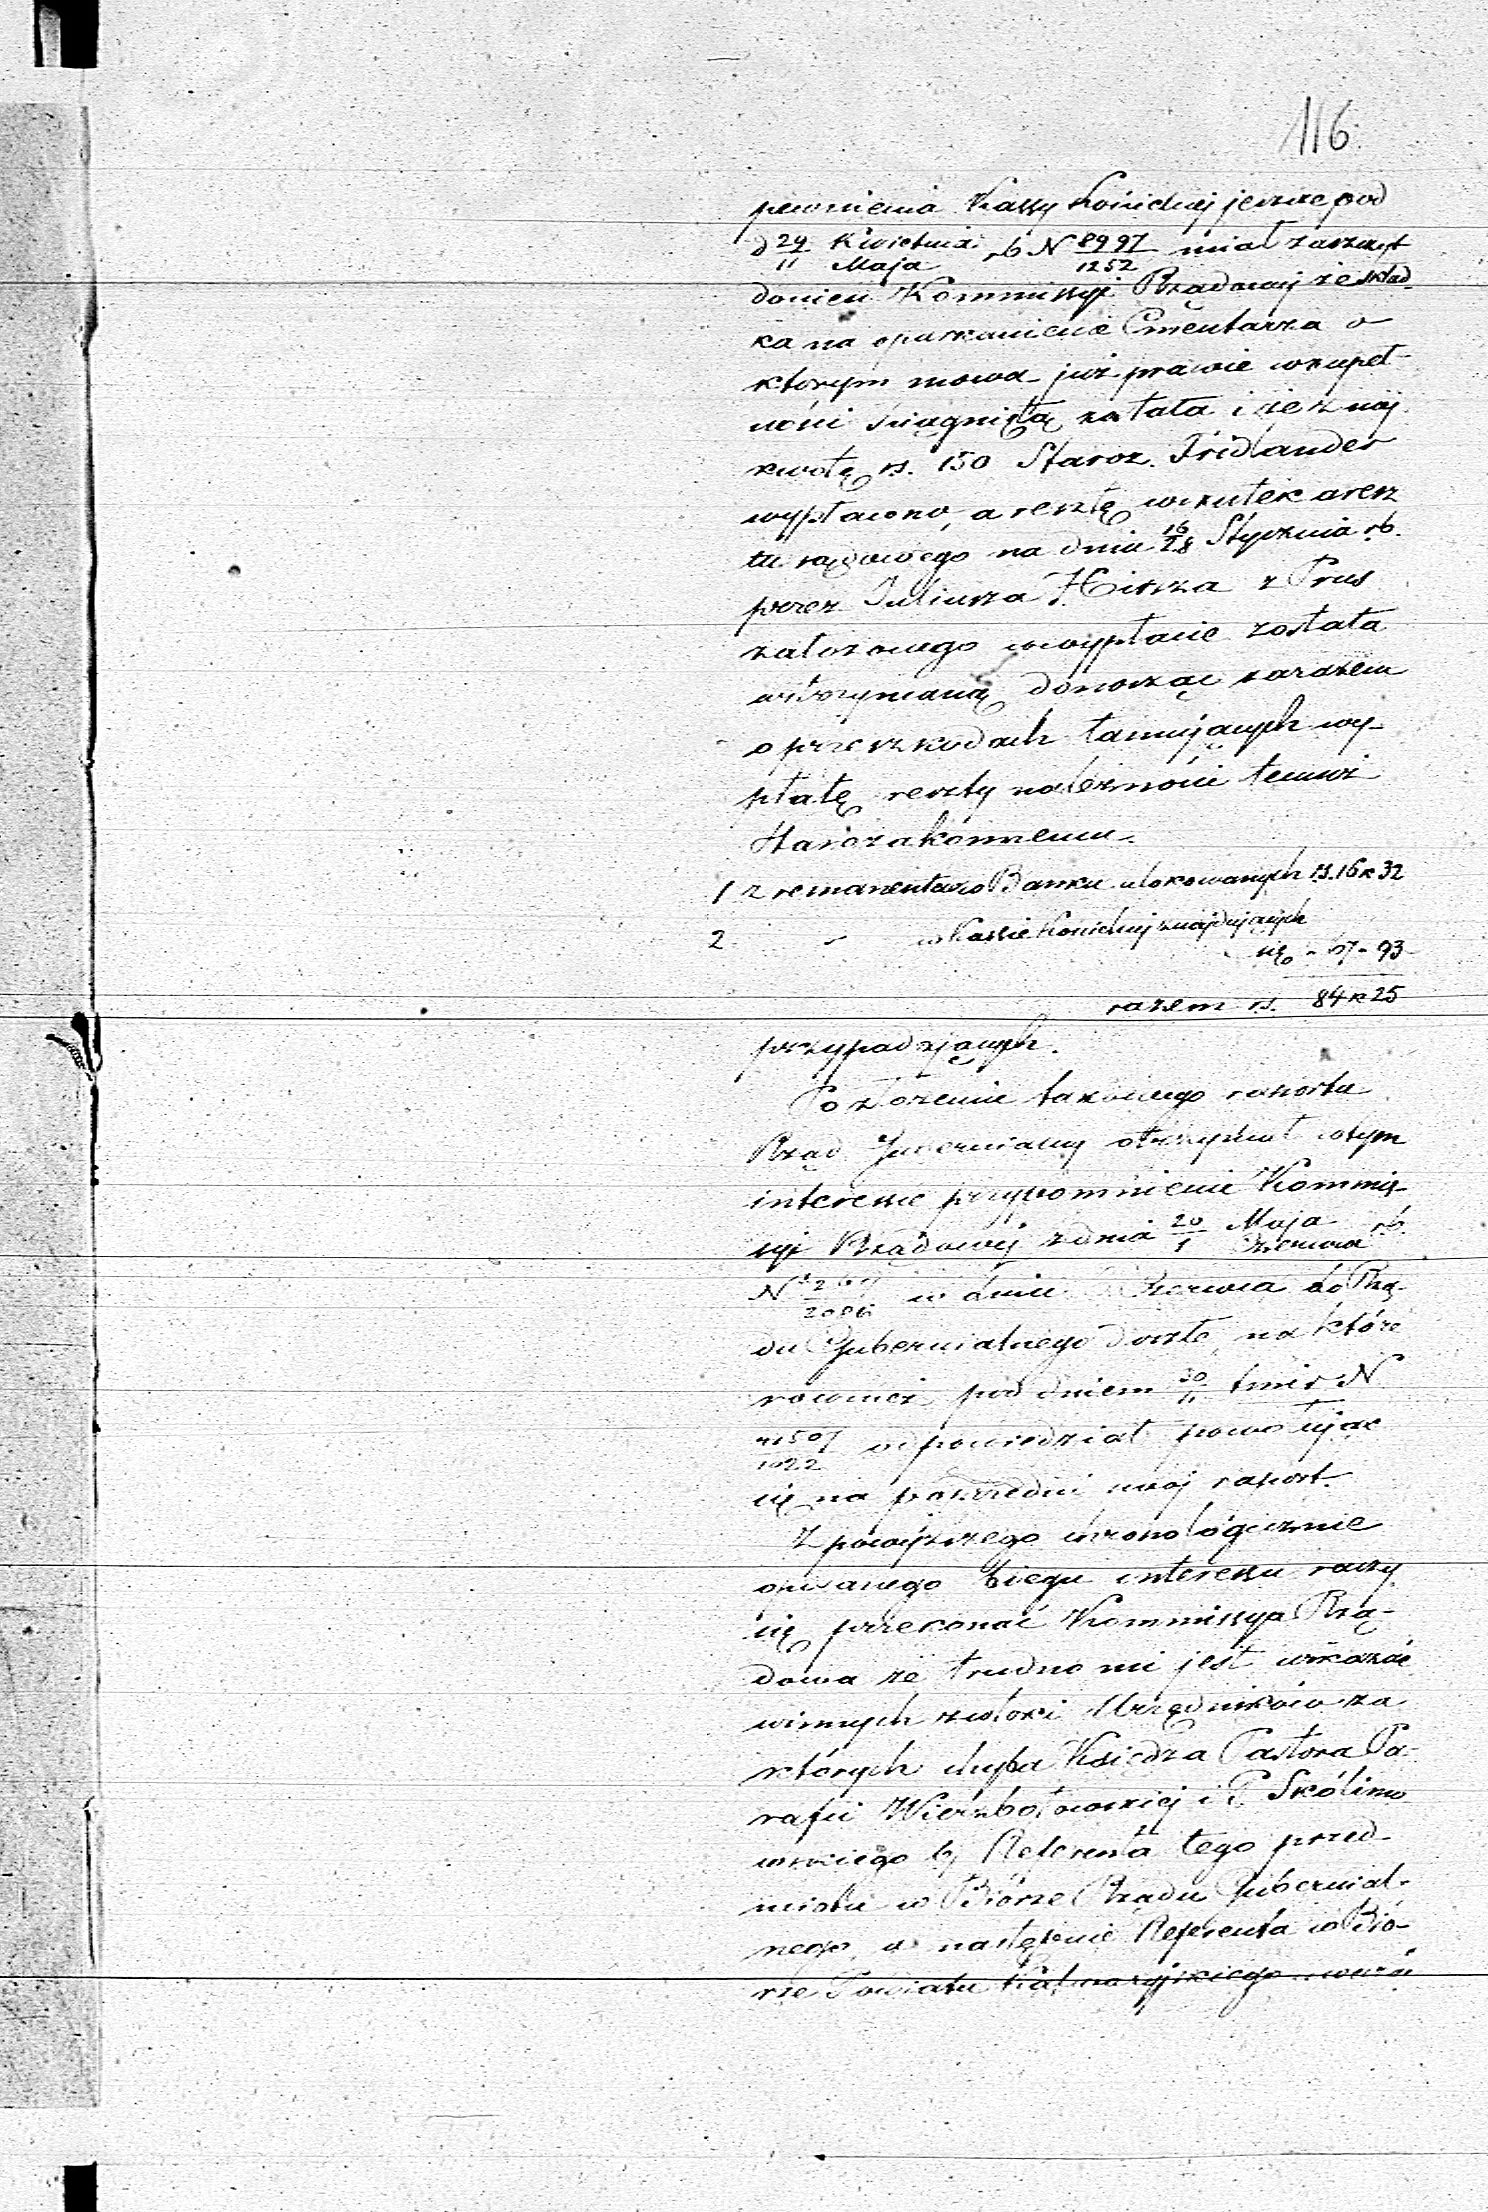 116.
pewnienia Kassy Kościelnej jeszcze pod
d 29/11 Kwietnia/Maja rb N 8997/1252 miał zaszczyt
donieść Kommissyi Rządowej że skład-
ka na oparkanienie Cmentarza o
ktorym mowa już prawie wzupeł-
ności ściągniętą została i że z niej
kwotę rs. 150 Staroz. Fridlander
wypłacono, a resztę wskutek aresz
tu sądowego na dniu 16/28 Stycznia rb.
przez Juliusza Hirsza z Prus
założonego wwypłacie została
wstrzymaną donosząc zarazem
o przeszkodach tamujących wy-
płatę reszty należności temuż
Starozakonnemu.
1 z remanentu w Banku ulokowanych rs. 16 k 32
2 " w Kassie Kościelnej znajdujących
się - 67 - 93
razem rs. 84 k 25
przypadających.
Po złożeniu takowego raportu
Rząd Gubernialny otrzymał wtym
interessie przypomnienie Kommis-
syi Rządowej z dnia 20/1 Maja/Czerwca rb.
N w dniu Czerwca do Rzą-
du Gubernialnego doszło, na które
rownież pod dniem 30/11 tmir N
odpowiedział powołując
się na poprzedni swój raport.
Z powyższego chronologicznie
opisanego biegu interessu raczy
się przekonać Kommissya Rzą-
dowa że trudno mi jest wskazać
winnych zwłoki Urzędników za
których chyba Księdza Pastora Pa-
rafii Wierzbołowskiej i P. Skólimo
wskiego b. Referenta tego przed-
miotu w Biórze Rządu Gubernial-
nego, a następnie Referenta w Bió-
rze Powiatu Kalwaryjskiego uważ